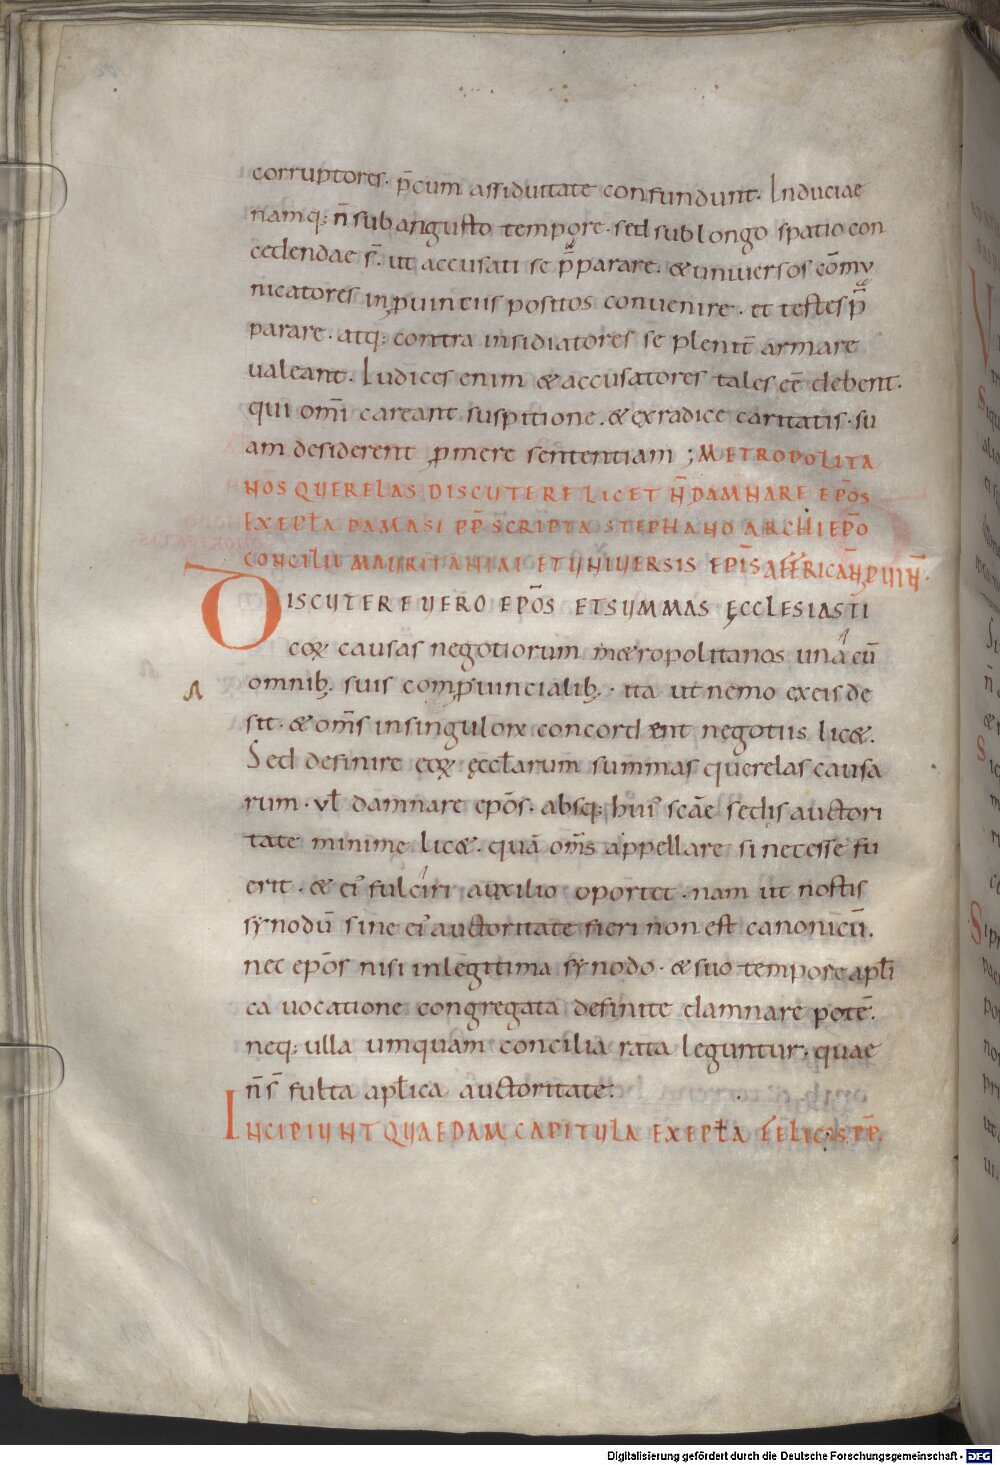 corruptores. p̄cum assiduitate confundunt. Induciae
namq; n̄ sub angusto tempore. sed sub longo spatio con
cedendae s̄. ut accusati se p̄parare. & uniuersos com̄u
nicatores in ꝓuinciis positos conuenire. et testes p̄
parare. atq; contra insidiatores se plenit̄ armare
ualeant. Iudices enim & accusatores tales eē debent.
qui om̄i careant suspitione. & ex radice caritatis. su
am desiderent ꝓmere sententiam ; METROPOLITA
NŌS QUERELAS DISCUTERE LICET N̄ DAMNARE EPŌS
EX EPŁA DAMASI PP̄ SCRIPTA STEPHANO ARCHIEPŌ
CONCILII MAURITANIAE ET UNIVERSIS EPĪS AFFRICAN̄ ꝒUIN̄.
DISCUTERE VERO EPŌS ET SUMMAS ĘCCLESIASTI
coꝝ causas negotiorum m&ropolitanos una cū
omnib; suis comꝓuincialib;. ita ut nemo ex eis de
sit. & om̄s in singuloꝝ concordent negotiis lic&.
Sed definire eoꝝ ęccłarum summas querelas causa
rum. vł damnare epōs. absq; hui' scāe sedis auctori
tate minime lic&. quā om̄s appellare si necesse fu
erit. & ei' fulciri auxilio oportet. nam ut nostis
synodū sine ei' auctoritate fieri non est canonicū.
nec epōs nisi in legitima synodo. & suo tempore apłi
ca uocatione congregata definite damnare potē.
neq; ulla umquam concilia rata leguntur. quae
n̄ s̄ fulta apłica auctoritate.
INCIPIUNT QUAEDAM CAPITULA EX EPŁA FELICIS PP̄.
Digitalisierung gefördert durch die Deutsche Forschungsgemeinschaft - DFG